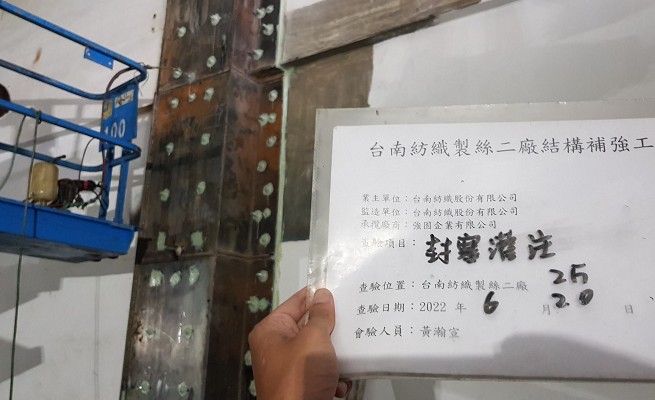 台南紡織製絲二廠結構補強工
業主單位：台南紡織股份有限公司
監造單位：台南紡織股份有限公司
承攬廠商：強固企業有限公司
查驗項目：封塞灌注
查驗位置：台南紡織製絲二廠 25
查驗日期：2022 年 6 月 20 日
會驗人員：黃瀚宣
100